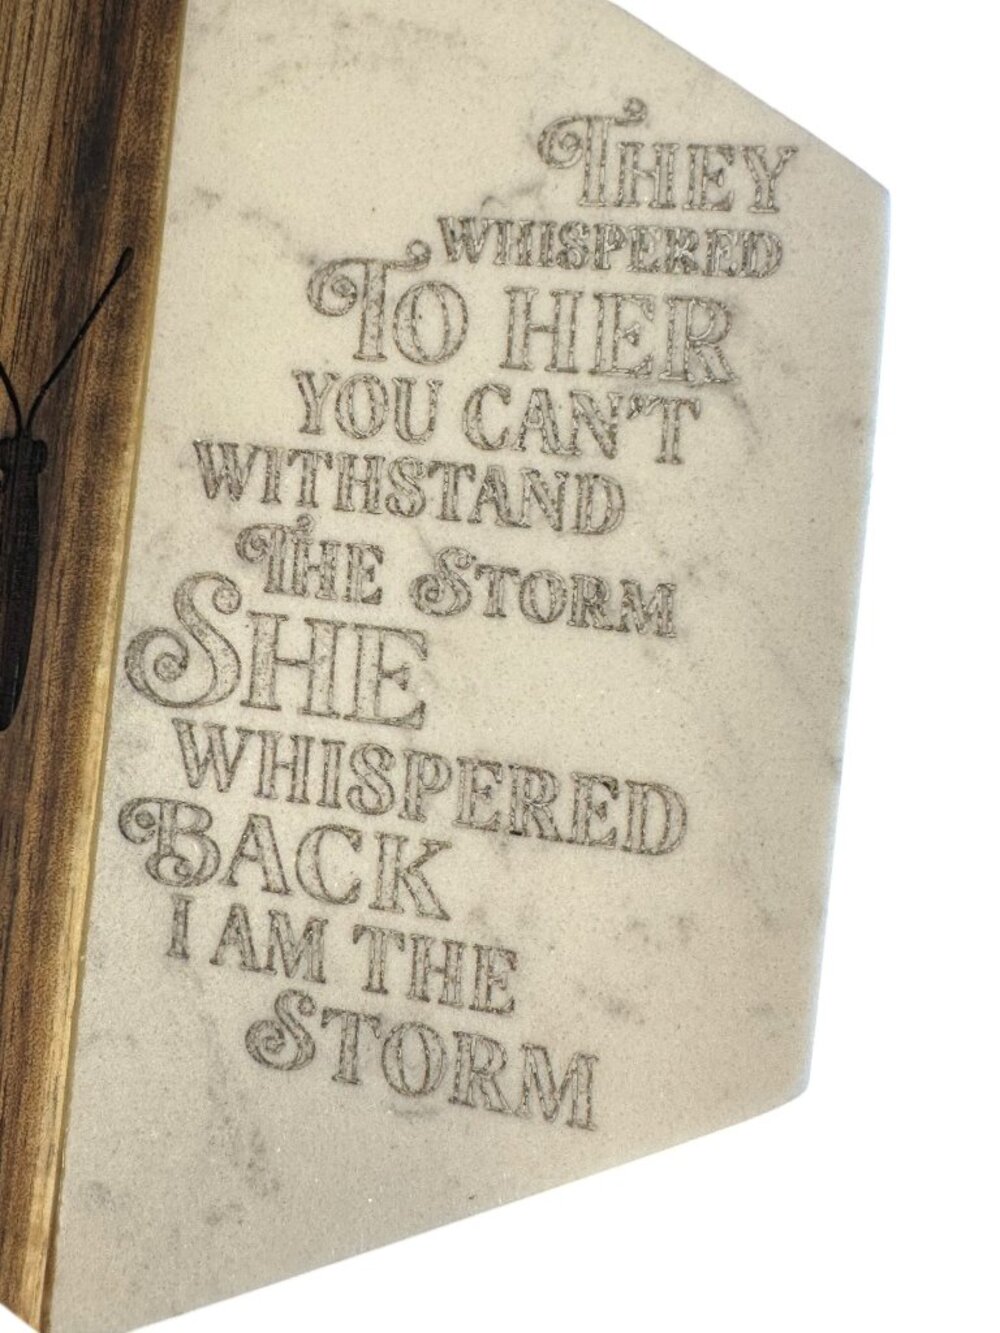 They
WHISPERED
To HER
YOU CAN'T
WITHSTAND
The Storm
She
WHISPERED
Back
I AM THE
Storm